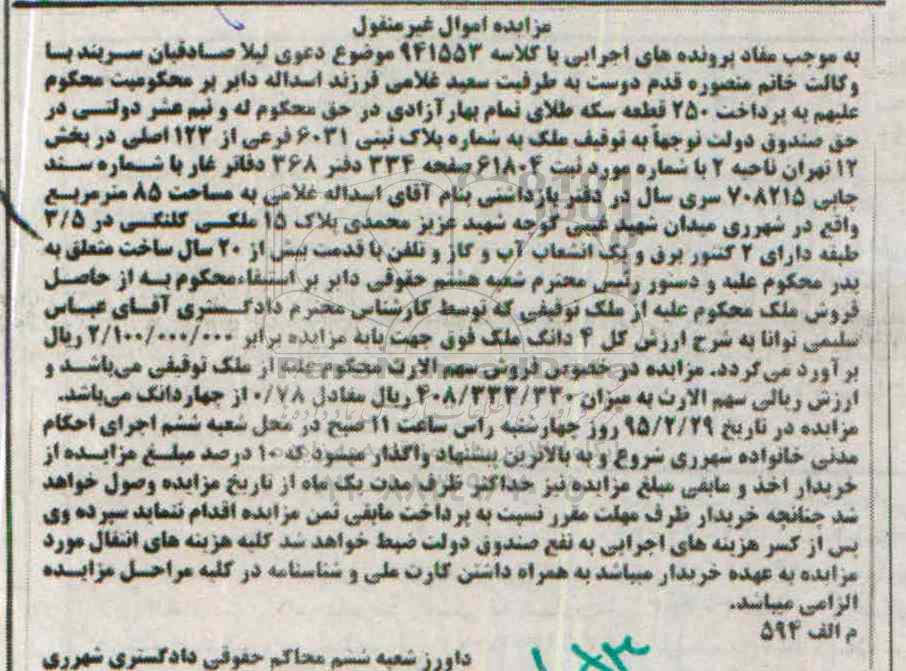 مزایده اموال غیر منقول
به موجب مفاد پرونده های اجرایی با کلاسه ۹۴۱۵۵۳ موضوع دعوی لیلا صادقیان سربند با
وکالت خانم منصوره قدم دوست به طرفیت سعید غلامی فرزند اسداله دایر بر محکومیت محکوم
علیهم به پرداخت ۲۵۰ قطعه سکه طلای تمام بهار آزادی در حق محکوم له و نیم عشر دولتی در
حق صندوق دولت توجهاً به توقیف ملک به شماره پلاک ثبتی ۶۰۳۱ فرعی از ۱۲۳ اصلی در بخش
۱۲ تهران ناحیه ۲ با شماره مورد ثبت ۶۱۸۰۴ صفحه ۳۳۴ دفتر ۳۶۸ دفاتر غار با شماره سند
چاپی ۷۰۸۲۱۵ سری سال در دفتر بازداشتی بنام آقای اسداله غلامی به مساحت ۸۵ مترمربع
واقع در شهرری میدان شهید غیبی کوچه شهید عزیز محمدی پلاک ۱۵ ملکی کلنگی در ۳/۵
طبقه دارای ۲ کنتور برق و یک انشعاب آب و گاز و تلفن با قدمت بیش از ۲۰ سال ساخت متعلق به
پدر محکوم علیه و دستور رئیس محترم شعبه هشتم حقوقی دایر بر استیفاء محکوم به از حاصل
فروش ملک محکوم علیه از ملک توقیفی که توسط کارشناس محترم دادگستری آقای عباس
سلیمی توانا به شرح ارزش کل ۴ دانگ ملک فوق جهت پایه مزایده برابر ۲/۱۰۰/۰۰۰/۰۰۰ ریال
برآورد می گردد. مزایده در خصوص فروش سهم الارث محکوم علیه از ملک توقیفی می‌باشد و
ارزش ریالی سهم الارث به میزان ۴۰۸/۳۳۳/۳۳۰ ریال معادل ۰/۷۸ از چهاردانگ می‌باشد.
مزایده در تاریخ ۹۵/۲/۲۹ روز چهارشنبه راس ساعت ۱۱ صبح در محل شعبه ششم اجرای احکام
مدنی خانواده شهرری شروع و به بالاترین پیشنهاد واگذار میشود که ۱۰ درصد مبلغ مزایده از
خریدار اخذ و مابقی مبلغ مزایده نیز حداکثر ظرف مدت یک ماه از تاریخ مزایده وصول خواهد
شد چنانچه خریدار ظرف مهلت مقرر نسبت به پرداخت مابقی ثمن مزایده اقدام ننماید سپرده وی
پس از کسر هزینه های اجرایی به نفع صندوق دولت ضبط خواهد شد کلیه هزینه های انتقال مورد
مزایده به عهده خریدار میباشد به همراه داشتن کارت ملی و شناسنامه در کلیه مراحل مزایده
الزامی میباشد.
م الف ۵۹۴
داورز شعبه ششم محاکم حقوقی دادگستری شهرری